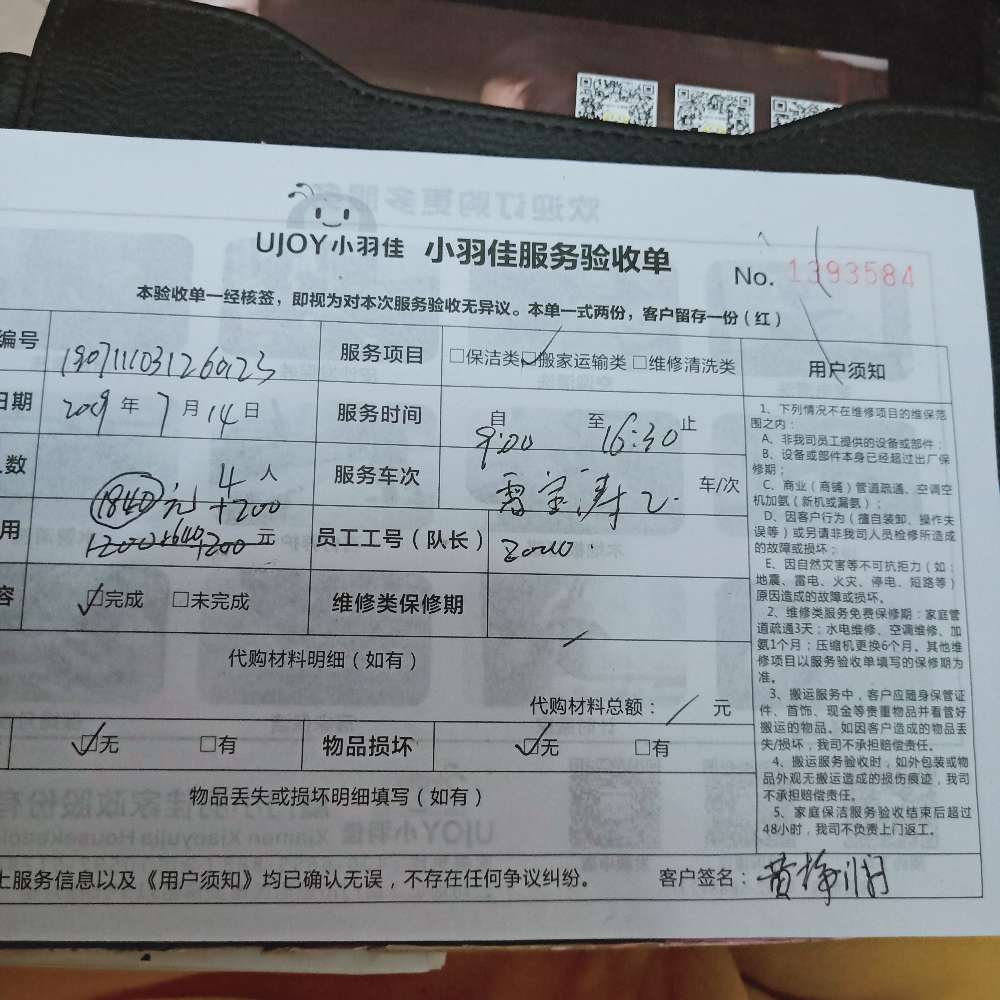 UJOY小羽佳 小羽佳服务验收单
No. 1393584
本验收单一经核签，即视为对本次服务验收无异议。本单一式两份，客户留存一份（红）
编号
服务项目 □保洁类 ☑搬家运输类 □维修清洗类
日期 2019 年 7 月 14 日
服务时间 自 9:00 至 16:30 止
人数 4 人
服务车次 车/次
用 1840 元 +200
1200+640+200 元
员工工号（队长）
容 ☑完成 □未完成
维修类保修期
代购材料明细（如有）
代购材料总额： / 元
☑无 □有
物品损坏 ☑无 □有
物品丢失或损坏明细填写（如有）
上服务信息以及《用户须知》均已确认无误，不存在任何争议纠纷。
客户签名：
用户须知
1、下列情况不在维修项目的维保范
围之内：
A、非我司员工提供的设备或部件；
B、设备或部件本身已经超过出厂保
修期；
C、商业（商铺）管道疏通、空调空
机加氨（新机或漏氨）；
D、因客户行为（擅自装卸、操作失
误等）或另请非我司人员检修所造成
的故障或损坏；
E、因自然灾害等不可抗拒力（如：
地震、雷电、火灾、停电、短路等）
原因造成的故障或损坏。
2、维修类服务免费保修期：家庭管
道疏通3天；水电维修、空调维修、加
氨1个月；压缩机更换6个月。其他维
修项目以服务验收单填写的保修期为
准。
3、搬运服务中，客户应随身保管证
件、首饰、现金等贵重物品并看管好
搬运的物品。如因客户造成的物品丢
失/损坏，我司不承担赔偿责任。
4、搬运服务验收时，如外包装或物
品外观无搬运造成的损伤痕迹，我司
不承担赔偿责任。
5、家庭保洁服务验收结束后超过
48小时，我司不负责上门返工。